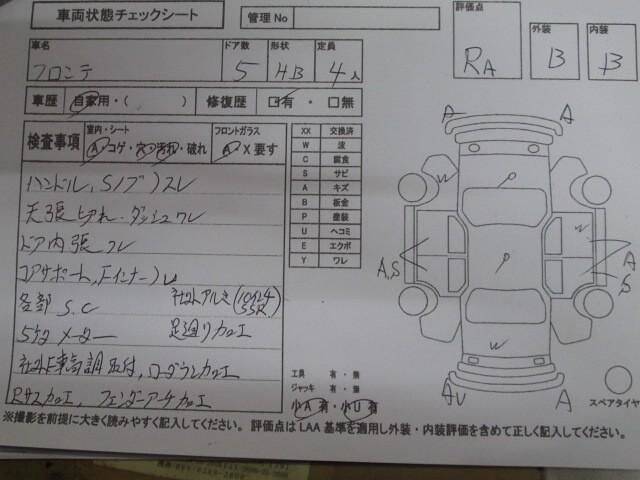 車両状態チェックシート
管理No
評価点
RA
外装
B
内装
B
車名
フロンテ
ドア数
5
形状
HB
定員
4人
車歴
自家用・( )
修復歴
□有・□無
検査事項
室内・シート
A コゲ・穴・汚れ・破れ
フロントガラス
A X要す
XX 交換済
W 波
C 腐食
S サビ
A キズ
B 板金
P 塗装
U ヘコミ
E エクボ
Y ワレ
ハンドル,Sノブスレ
天張切れ・ダッシュワレ
ドア内張ワレ
コアサポート,Fインナー
各部 S.C
社外アルミ
5ケタメーター
足廻り加工
社外F車高調取付,ローダウン加工
Rサス加工,フェンダーアーチ加工
工具 有・無
ジャッキ 有・無
小A有・小U有
A
A
W
P
W
A,S
P
A
S
W
AU
A
スペアタイヤ
※撮影を前提に大きく読みやすく記入してください。評価点はLAA基準を適用し外装・内装評価を含めて正しく記入してください。